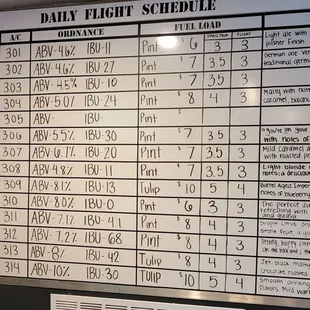 DAILY FLIGHT SCHEDULE
ORDNANCE FUEL LOAD
301 ABV-4.6% IBU-11 Pint $6 3 3 Light ale with a
pilsner Finish
302 ABV-4.6% IBU-27 Pint $7 3.5 3 German ale
traditional
303 ABV-4.5% IBU-10 Pint $7 3.5 3
304 ABV-5.0% IBU-24 Pint $8 4 3 Malty with
caramel,
305 ABV- IBU- Pint
306 ABV-5.5% IBU-30 Pint $7 3.5 3 "you're on your
with notes of
307 ABV-6.7% IBU-20 Pint $7 3.5 3 Mild caramel
with roasted
308 ABV-4.8% IBU-11 Pint $7 3.5 3 Light blonde
notes; a delicious
309 ABV-8.1% IBU-13 Tulip $10 5 4 Barrel Aged Imperial
notes of blueberry
310 ABV-8.0% IBU-0 Pint $6 3 3 The perfect
refreshing with
and guava
311 ABV-7.1% IBU-41 Pint $8 4 3
312 ABV-7.2% IBU-68 Pint $8 4 3 Strong hoppy
on the back end,
313 ABV-8% IBU-42 Tulip $8 4 3 Jet black
chocolate, roasted
314 ABV-10% IBU-30 Tulip $10 5 4 Smooth drinking
flavors. Mild